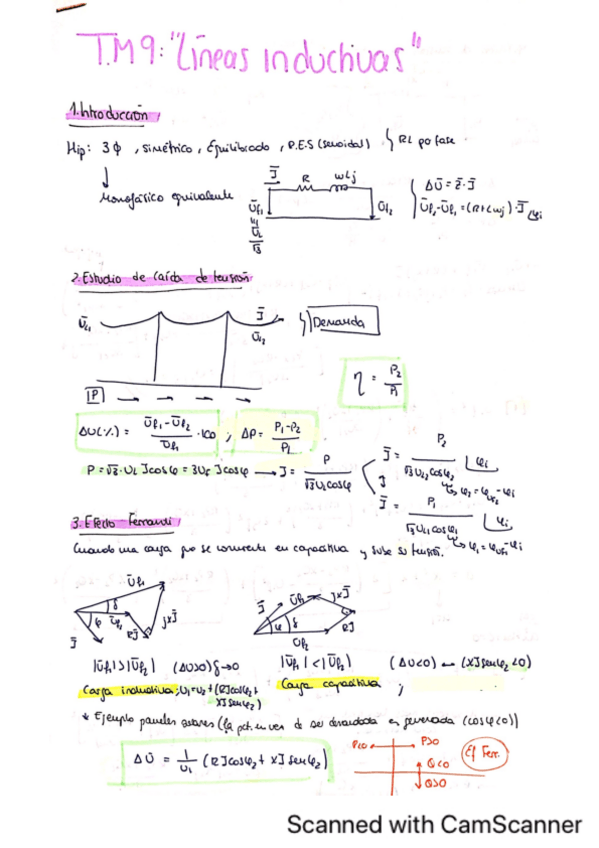 T.M 9: "Líneas inductivas"
1. Introducción
Hip: 3ϕ, simétrico, Equilibrado, R.E.S (senoidal) } RL por fase
Monofásico equivalente
J̄ R wLj
Ūf1
UL
√3
Ūf2
ΔŪ = z̄·J̄
Ūf1-Ūf2 = (R+Lwj)·J̄ φi
2. Estudio de caída de tensión
ŪL1
J̄
ŪL2
Demanda
P
η = P2/P1
ΔU(%) = (Ūf1-Ūf2)/Ūf1 ·100 ; ΔP = (P1-P2)/P1
P = √3·UL Jcosφ = 3Uf Jcosφ → J = P/(√3ULcosφ)
J̄ = P2/(√3UL2cosφ2) φi
φ2 = φUf2-φi
J̄ = P1/(√3UL1cosφ1) φi
φ1 = φUf1-φi
3. Efecto Ferranti
Cuando una carga se convierte en capacitiva y sube su tensión.
Ūf1
δ
φ
RJ̄
jxJ̄
J̄
J̄ Ūf1 jxJ̄
φ δ
Ūf2 RJ̄
|Ūf1|>|Ūf2| (ΔU>0) δ→0
|Ūf1|<|Ūf2| (ΔU<0) ← (XJsenφ2<0)
Carga inductiva; U1=U2+(RJcosφ2+
XJsenφ2)
Carga capacitiva ;
* Ejemplo paneles solares (la pot. en vez de ser demandada es generada (cosφ<0))
ΔŪ = 1/U1 (RJcosφ2 + XJsenφ2)
P<0 P>0
Q<0
Q>0
Ef Ferr.
Scanned with CamScanner